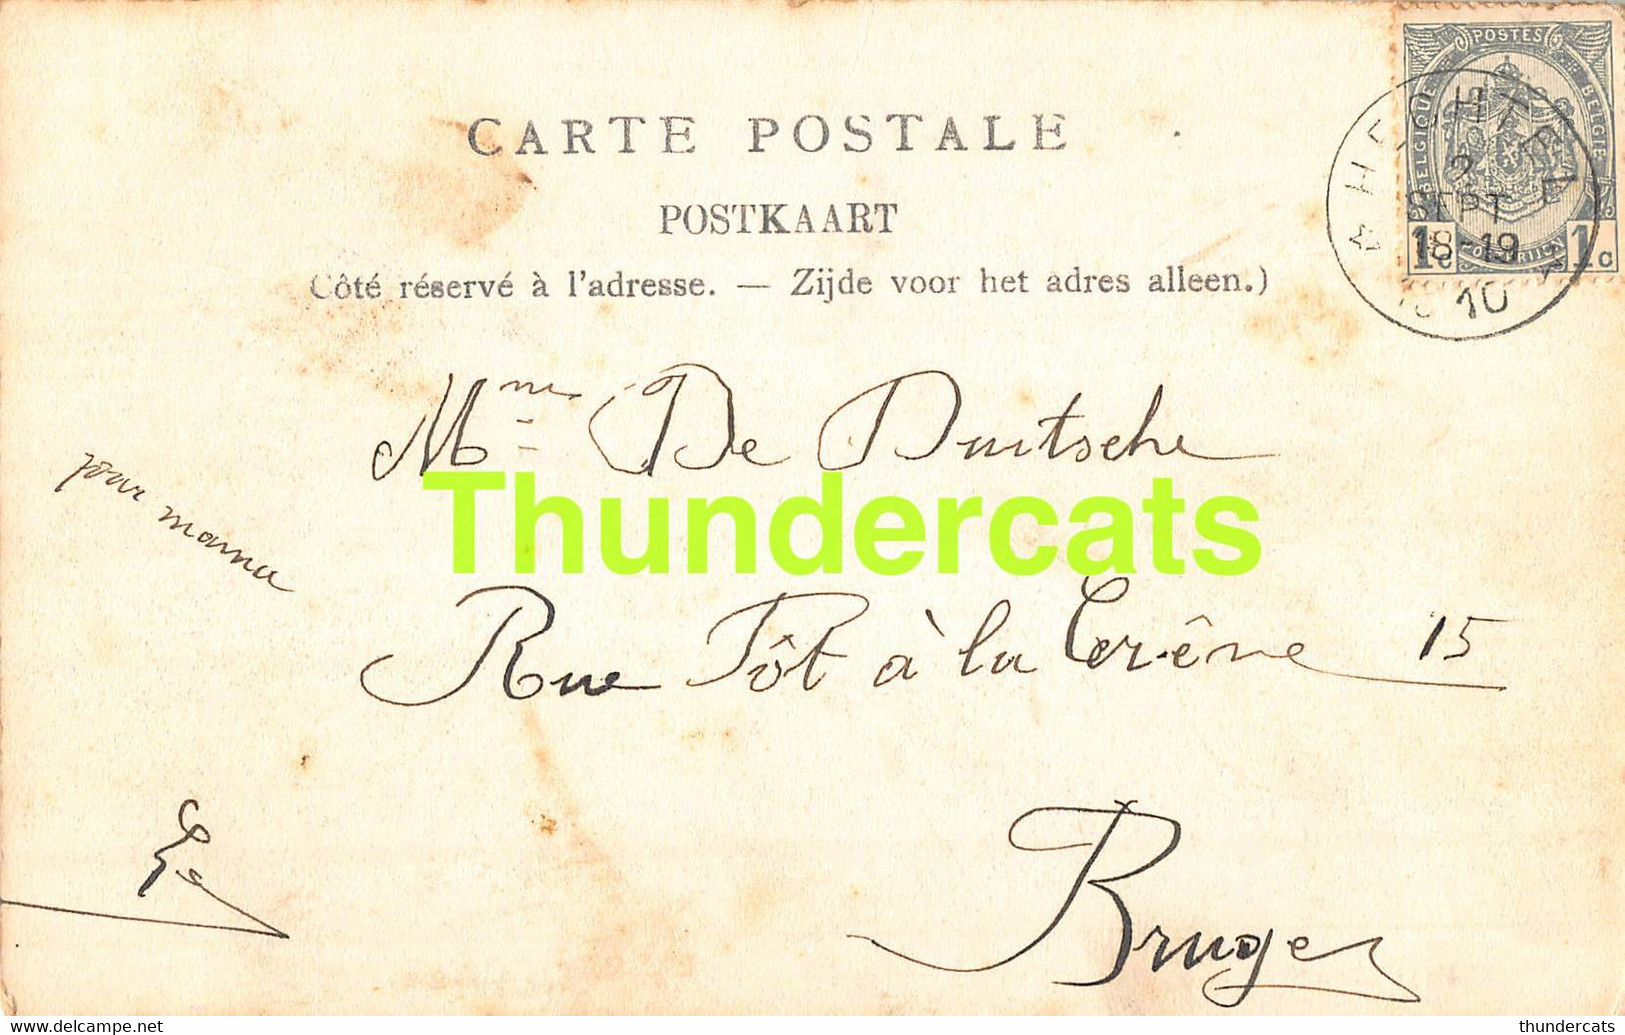 CARTE POSTALE
POSTKAART
Côté réservé à l'adresse. — Zijde voor het adres alleen.)
POSTES
BELGIQUE BELGIË
1c 1c
2
SEPT
18-19
10
Mme De Duitsche
pour mama
Thundercats
Rue Pôt à la Crême 15
Bruges
www.delcampe.net
thundercats